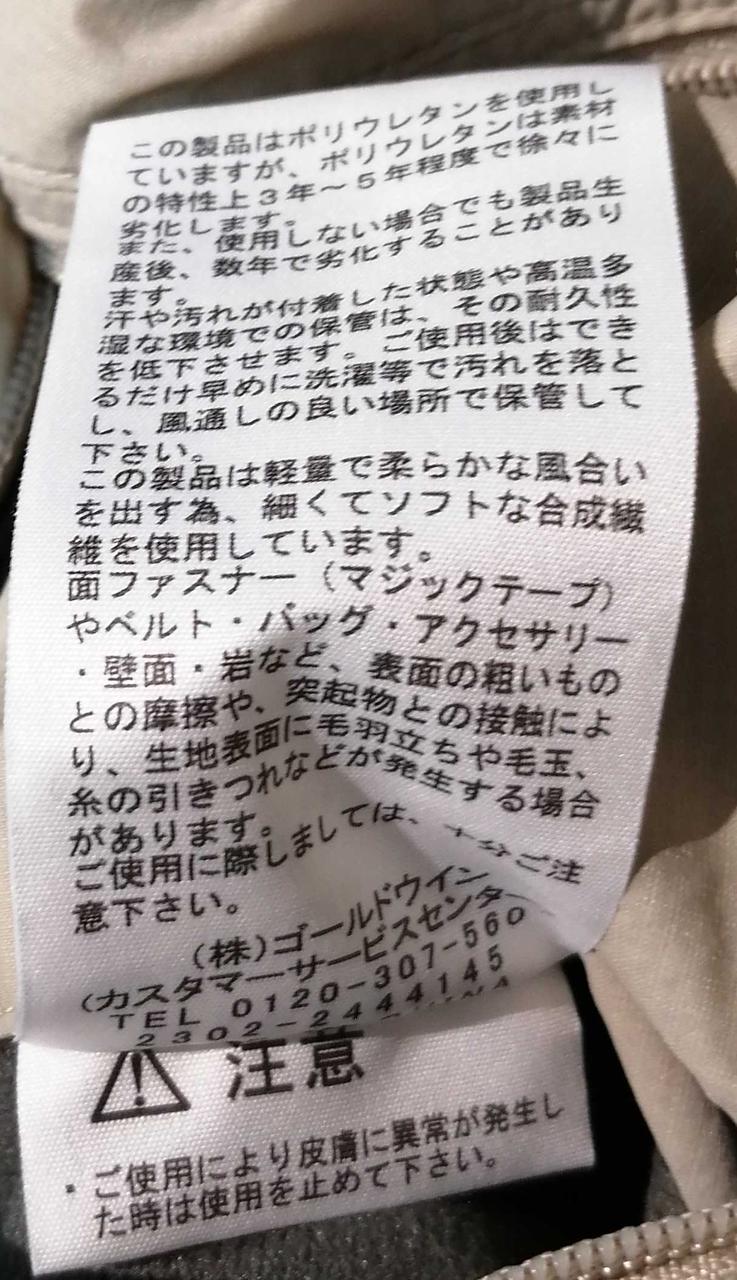 この製品はポリウレタンを使用し
ていますが、ポリウレタンは素材
の特性上3年～5年程度で徐々に
劣化します。
また、使用しない場合でも製品生
産後、数年で劣化することがあり
ます。
汗や汚れが付着した状態や高温多
湿な環境での保管は、その耐久性
を低下させます。ご使用後はでき
るだけ早めに洗濯等で汚れを落と
し、風通しの良い場所で保管して
下さい。
この製品は軽量で柔らかな風合い
を出す為、細くてソフトな合成繊
維を使用しています。
面ファスナー（マジックテープ）
やベルト・バッグ・アクセサリー
・壁面・岩など、表面の粗いもの
との摩擦や、突起物との接触によ
り、生地表面に毛羽立ちや毛玉、
糸の引きつれなどが発生する場合
があります。
ご使用に際しましては、十分ご注
意下さい。
(株)ゴールドウイン
(カスタマーサービスセンター
TEL 0120-307-560
2302-2444145
注意
・ご使用により皮膚に異常が発生し
た時は使用を止めて下さい。